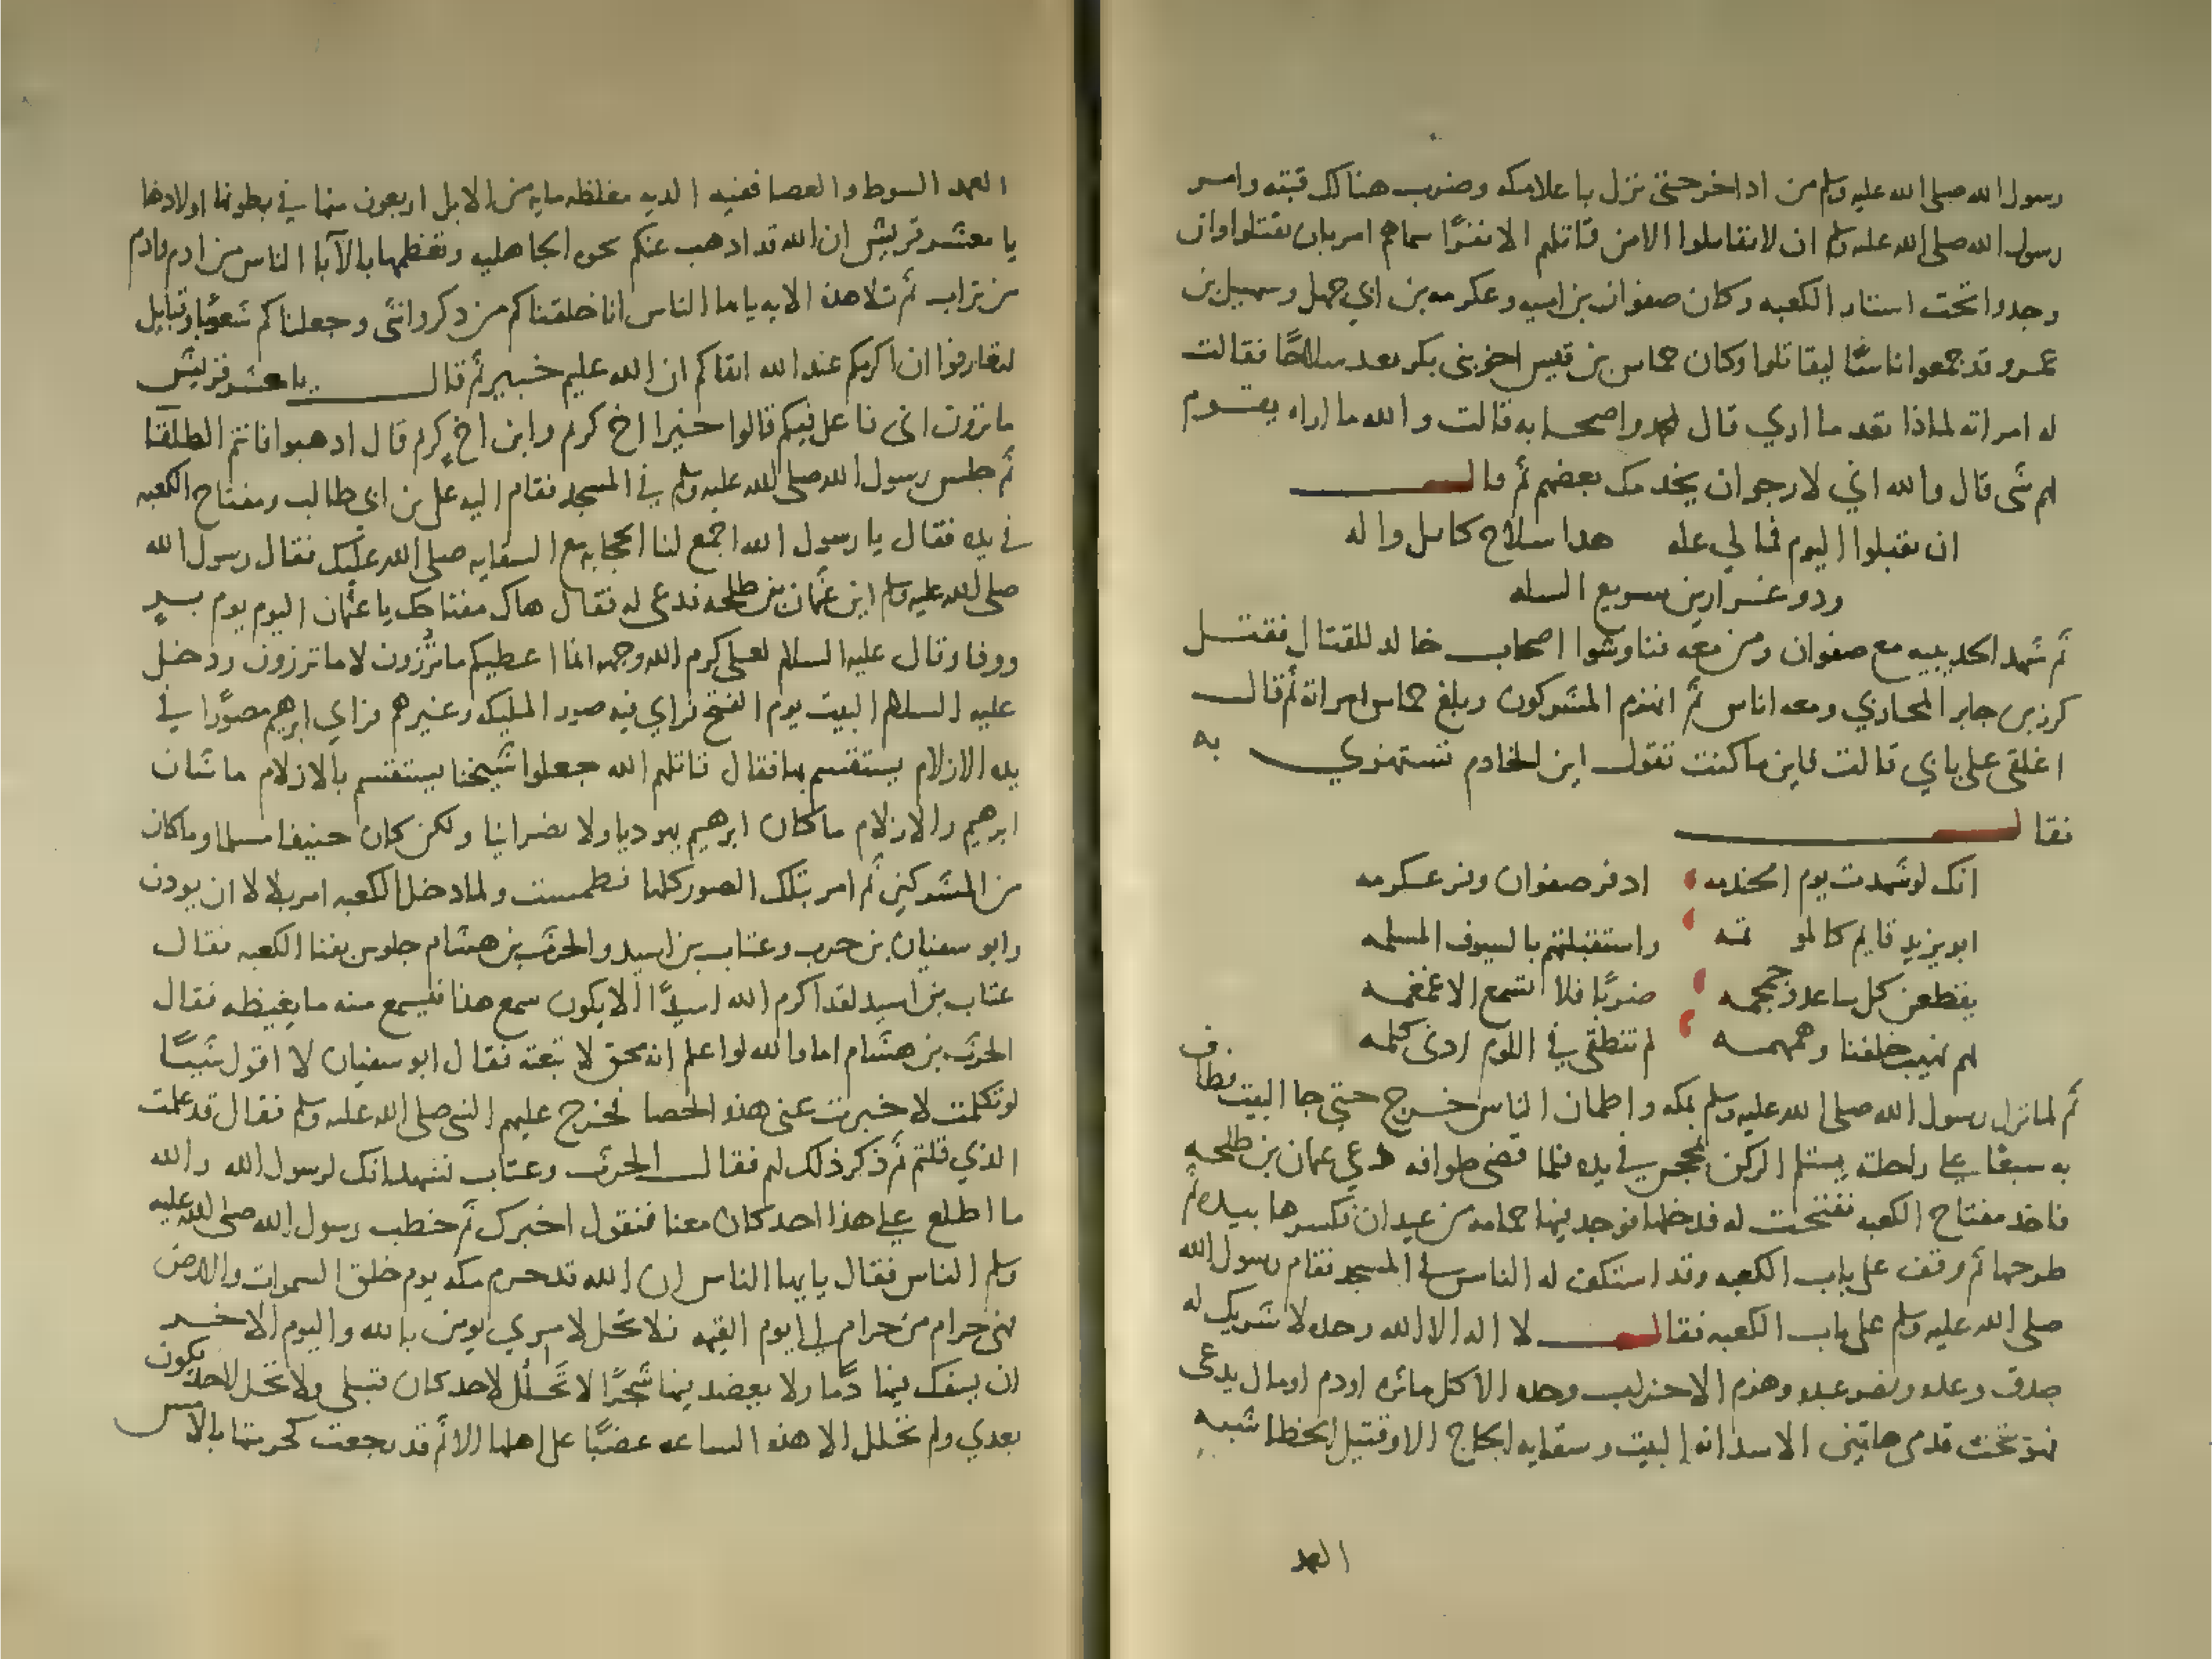 رسول الله صلى الله عليه وسلم من اداخر حتى نزل باعلا مكه وضرب هنالك قبته وامر
رسول الله صلى الله عليه وسلم ان لا يقاتلوا الا من قاتلهم الا نفرًا سماهم امر بان يقتلوا وان
وجدوا تحت استار الكعبه وكان صفوان بن اميه وعكرمه بن ابي جهل وسهيل بن
عمرو قد جمعوا اناسًا ليقاتلوا وكان حماس بن قيس اخو بني بكر يعد سلاحًا فقالت
له امراته لماذا تعد ما اري قال لمحمد واصحابه قالت والله ما اراه يقوم
لهم شي قال والله اني لارجوان يخدمك بعضهم ثم قال
ان يقبلوا اليوم فما لي عله هدا سلاح كامل واله
ودو غرارين سريع السله
ثم شهد الحديبيه مع صفوان ومن معه فناوشوا اصحاب خالد للقتال فقتل
كرز بن جابر المحاربي ومعه اناس ثم انهزم المشركون وبلغ حماس امراته ثم قال
اغلقي علي بابي قالت فاين ما كنت تقول اين الخادم تستهزي به
فقال
انك لو شهدت يوم الخندمه اد فر صفوان وفر عكرمه
ابو يزيد قايم كالموتمه واستقبلتهم بالسيوف المسلمه
يقطعن كل ساعد وجمجمه ضربًا فلا تسمع الا غمغمه
لهم نهيت خلفنا وهمهمه لم تنطقي في اللوم ادنى كلمه
ثم لما نزل رسول الله صلى الله عليه وسلم بمكه واطمان الناس خرج حتى جا البيت فطاف
به سبعًا على راحلته يستلم الركن بمحجن في يده فلما قضى طوافه دعي عثمان بن طلحه
فاخذ مفتاح الكعبه ففتحت له فدخلها فوجد فيها حمامه من عيدان فكسرها بيده ثم
طرحها ثم وقف على باب الكعبه وقد استكف له الناس في المسجد فقام رسول الله
صلى الله عليه وسلم على باب الكعبه فقال لا اله الا الله وحده لا شريك له
صدق وعده ونصر عبده وهزم الاحزاب وحده الا كل ماثره او دم او مال يدعى
فهو تحت قدمي هاتين الا سدانه البيت وسقايه الحاج الا وقتيل الخطا شبه
العمد
العمد السوط والعصا ففيه الديه مغلظه مايه من الابل اربعون منها في بطونها اولادها
يا معشر قريش ان الله قد ادهب عنكم نخوه الجاهليه وتعظمها بالآبا الناس من ادم وادم
من تراب ثم تلا هذه الايه يا ايها الناس انا خلقناكم من دكر وانثى وجعلناكم شعوبًا وقبايل
لتعارفوا ان اكرمكم عند الله اتقاكم ان الله عليم خبير ثم قال يا معشر قريش
ما ترون اني فاعل فيكم قالوا خيرا اخ كرم وابن اخ كرم قال ادهبوا فانتم الطلقا
ثم جلس رسول الله صلى الله عليه وسلم في المسجد فقام اليه علي بن ابي طالب ومفتاح الكعبه
في يده فقال يا رسول الله اجمع لنا الحجابه مع السقايه صلى الله عليك فقال رسول الله
صلى الله عليه وسلم اين عثمان بن طلحه فدعي له فقال هاك مفتاحك يا عثمان اليوم يوم بر
ووفا وقال عليه السلام لعلي كرم الله وجهه انما اعطيكم ما تُرزون لا ما ترزون ودخل
عليه السلام البيت يوم الفتح فراي فيه صور المليكه وغيرهم فراي ابرهيم مصورًا في
يده الازلام يستقسم بها فقال قاتلهم الله جعلوا شيخنا يستقسم بالازلام ما شان
ابرهيم والازلام ما كان ابرهيم يهوديا ولا نصرانيا ولكن كان حنيفا مسلما وما كان
من المشركين ثم امر بتلك الصور كلها فطمست ولما دخل الكعبه امر بلالا ان يودن
وابو سفيان بن حرب وعتاب بن اسيد والحرث بن هشام جلوس بفنا الكعبه فقال
عتاب بن اسيد لقد اكرم الله اسيدًا الا يكون سمع هذا فيسمع منه ما يغيظه فقال
الحرث بن هشام اما والله لو اعلم انه محق لاتبعته فقال ابو سفيان لا اقول شيئًا
لو تكلمت لاخبرت عني هذه الحصا فخرج عليهم النبي صلى الله عليه وسلم فقال قد علمت
الذي قلتم ثم ذكر ذلك لهم فقال الحرث وعتاب نشهد انك لرسول الله والله
ما اطلع على هذا احد كان معنا فنقول اخبرك ثم خطب رسول الله صلى الله عليه
وسلم الناس فقال يا ايها الناس ان الله قد حرم مكه يوم خلق السموات والارض
فهي حرام من حرام الى يوم القيمه فلا تحل لامري يومن بالله واليوم الاخر
ان يسفك فيها دمًا ولا يعضد فيها شجرًا لا تحلل لاحد كان قبلي ولا تحل لاحد يكون
بعدي ولم تحلل الا هذه الساعه غضبًا على اهلها الا ثم قد رجعت كحرمتها بالامس